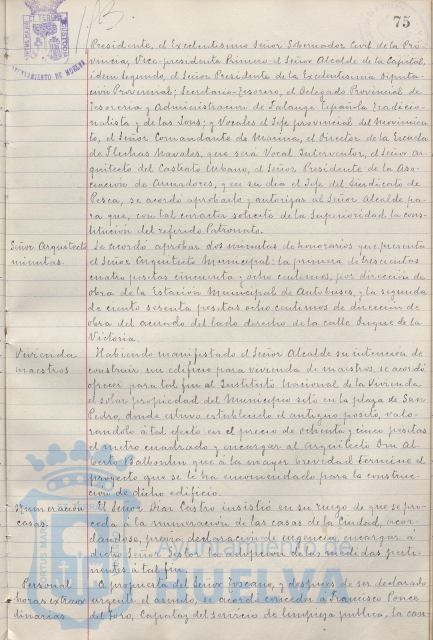 75
Presidente, el Excelentísimo Señor Gobernador Civil de la Pro-
vincia, Vice-presidente Primero el Señor Alcalde de la Capital,
idem Segundo, el Señor Presidente de la Excelentísima Diputa-
ción Provincial; Secretario-Tesorero, el Delegado Provincial de
Tesorería y Administración de Falange Española Tradicio-
nalista y de las Jons; y Vocales el Jefe provincial del Movimien-
to, el Señor Comandante de Marina, el Director de la Escuela
de Flechas Navales, que será Vocal Interventor, el Señor Ar-
quitecto del Catastro Urbano, el Señor Presidente de la Aso-
ciación de Armadores, y en su dia el Jefe del Sindicato de
Pesca, se acordó aprobarlo y autorizar al Señor Alcalde pa-
ra que, con tal caracter solicite de la Superioridad la cons-
titución del referido Patronato.
Señor Arquitecto
minutas.
Se acordó aprobar dos minutas de honorarios que presenta
el Señor Arquitecto Municipal: la primera de trescientas
cuatro pesetas cincuenta y ocho centimos, por dirección de
obra de la Estación Municipal de Autobuses, y la segunda
de ciento sesenta pesetas ocho centimos de dirección de
obra del acerado del lado derecho de la calle Duque de la
Victoria.
Vivienda
maestros
Habiendo manifestado el Señor Alcalde su intención de
construir un edificio para vivienda de maestros, se acordó
ofrecer para tal fin al Instituto Nacional de la Vivienda
el solar propiedad del Municipio sito en la plaza de San
Pedro, donde estuvo establecido el antiguo posito, valo-
randolo á tal efecto en el precio de ochenta y cinco pesetas
el metro cuadrado y encargar al Arquitecto Don Al-
berto Balbontin que á la mayor brevedad termine el
proyecto que se le ha encomendado para la construc-
ción de dicho edificio.
Numeración
casas.
El Señor Diaz Castro insistió en su ruego de que se pro-
ceda á la numeración de las casas de la Ciudad, acor-
dandose, previa declaración de urgencia, encargar á
dicho Señor Gestor la adopción de las medidas perti-
nentes á tal fin.
Personal
horas extraor-
dinarias
A propuesta del Señor Toscano, y despues de ser declarado
urgente el asunto, se acordó conceder á Francisco Ponce
del Toro, Capataz del servicio de limpieza publica, la can-
AYUNTAMIENTO DE HUELVA
Ayuntamiento de
HUELVA